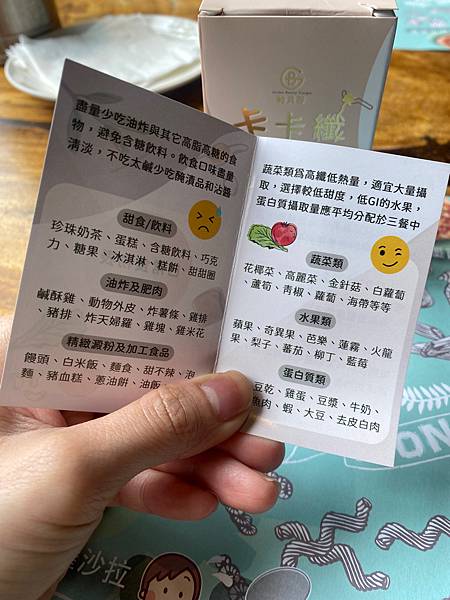 卡卡纖
盡量少吃油炸與其它高脂高糖的食
物，避免含糖飲料。飲食口味盡量
清淡，不吃太鹹少吃醃漬品和沾醬
甜食/飲料
珍珠奶茶、蛋糕、含糖飲料、巧克
力、糖果、冰淇淋、糕餅、甜甜圈
油炸及肥肉
鹹酥雞、動物外皮、炸薯條、雞排
、豬排、炸天婦羅、雞塊、雞米花
精緻澱粉及加工食品
饅頭、白米飯、麵食、甜不辣、泡
麵、豬血糕、蔥油餅、油飯
蔬菜類為高纖低熱量，適宜大量攝
取，選擇較低甜度，低GI的水果，
蛋白質攝取量應平均分配於三餐中
蔬菜類
花椰菜、高麗菜、金針菇、白蘿蔔
、蘆筍、青椒、蘿蔔、海帶等等
水果類
蘋果、奇異果、芭樂、蓮霧、火龍
果、梨子、蕃茄、柳丁、藍莓
蛋白質類
豆乾、雞蛋、豆漿、牛奶、
魚肉、蝦、大豆、去皮白肉
ON
沙拉